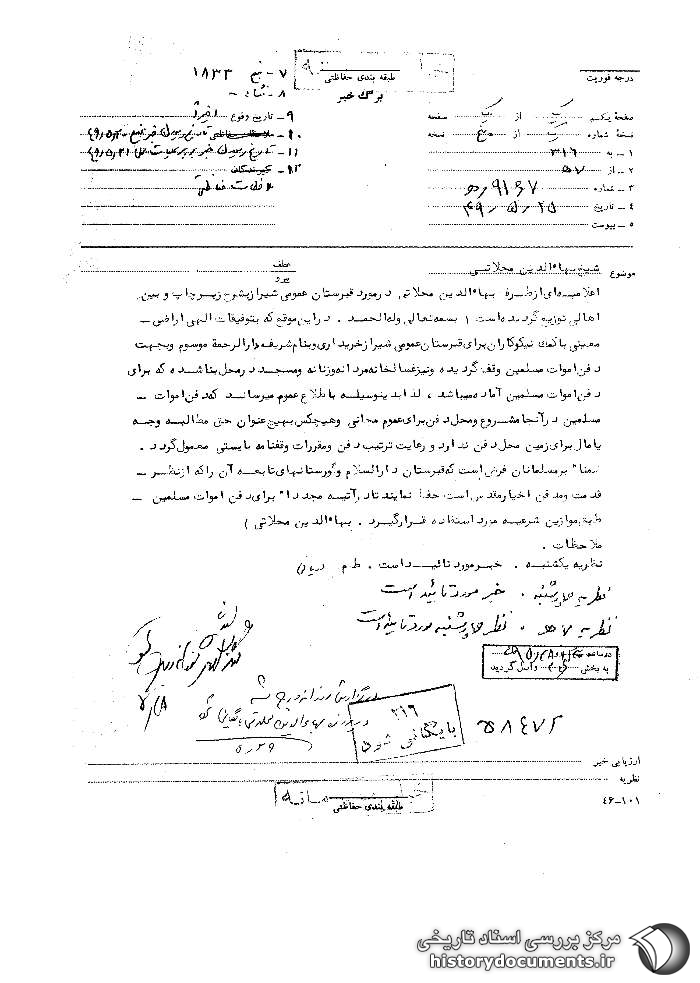 طبقه بندی حفاظتی
برگ خبر
درجه فوریت
صفحه یکم از یک صفحه
نسخه شماره از پنج نسخه
۱ ـ به ۳۱۶
۲ ـ از ۵۷
۳ ـ شماره ۵٫۹۱۶۷
۴ ـ تاریخ ۴۹٫۵٫۲۵
۵ ـ پیوست
۷ ـ منبع ۱۸۳۳
۸ ـ منشاء ـ
۹ ـ تاریخ وقوع اخیراً
۱۰ ـ تاریخ رسیدن خبر به منبع ۴۹٫۵٫۲۰
۱۱ ـ تاریخ رسیدن خبر به رهبر عملیات ۴۹٫۵٫۲۱
۱۲ ـ
ملاحظات حفاظتی
موضوع شیخ بهاءالدین محلاتی
عطف
پیرو
اعلامیه ای از طرف بهاءالدین محلاتی در مورد قبرستان عمومی شیراز بشرح زیر چاپ و بین
اهالی توزیع گردیده است ( بسمه تعالی وله الحمد . در این موقع که بتوفیقات الهی اراضی ـ
معینی با کمک نیکوکاران برای قبرستان عمومی شیراز خریداری و بنام شریفه دارالرحمة موسوم و بجهت
دفن اموات مسلمین وقف گردیده و نیز غسالخانه مردانه و زنانه و مسجد در محل بنا شده که برای
دفن اموات مسلمین آماده میباشد ، لذا بدینوسیله باطلاع عموم میرساند که دفن اموات ـ
مسلمین در آنجا مشروع و محل دفن برای عموم مجانی و هیچکس بهیچ عنوان حق مطالبه وجه
یا مال برای زمین محل دفن ندارد و رعایت ترتیب دفن و مقررات وقفنامه بایستی معمول گردد .
ضمنا" بر مسلمانان فرض است که قبرستان دارالسلام و گورستانهای تابعه آن را که از نظر ـ
قدمت و مدفن اخیار مقدس است حفظ نمایند تا در آتیه مجددا" برای دفن اموات مسلمین ـ
طبق موازین شرعیه مورد استفاده قرار گیرد . بهاءالدین محلاتی )
ملاحظات .
نظریه یکشنبه . خبر مورد تائید است . ط م
نظریه چهارشنبه . خبر مورد تائید است
نظریه ۷ ه . نظر چهارشنبه مورد تائید است
به بخش واصل گردید
در گزارش روزانه درج شد
در پرونده بهاءالدین محلاتی بایگانی شود
۵٫۲۹
۳۱۶
بایگانی شود
۵۸۴۷۲
ارزیابی خبر
نظریه
طبقه بندی حفاظتی
۴۶ـ۱۰۱
مرکز بررسی اسناد تاریخی
historydocuments.ir